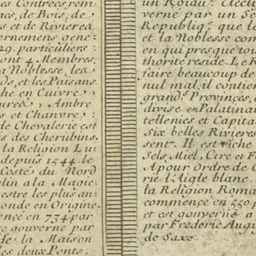 es Contrées, rem
tes, de Bois, de
s et de Rivieres.
ernemens gene:
29. particuliers:
ont 4. Membres,
a Noblesse, les
ds, et les Paisans
he en Cuivre,
urées, Ambre
s et Chanvre:
e Chevalerie est
s des Cherubins
la Religion Lu
depuis 1544. le
Costé du Nord
lin a la Magie
estre les plus an
onde en Origine.
nce en 774 par
gouverné par
de la Maison
es deux Ponts.
un Roiau.e Electi
verné par un Se
Republiq. que le
et la Noblesse com
en qui presque tou
thorité reside. Le R
faire beaucoup de
nul mal, il contien
grand. Provinces,
divise en Palatinat
tellenies et Capita
Six belles Rivieres
sent. Il est riche
Sels, Miel, Cire et F
A pour Ordre de C
rie l'Aigle blanc.
la Religion Roma
commencé en 550.
et est gouverné a
par Frederic Aug
de Saxe